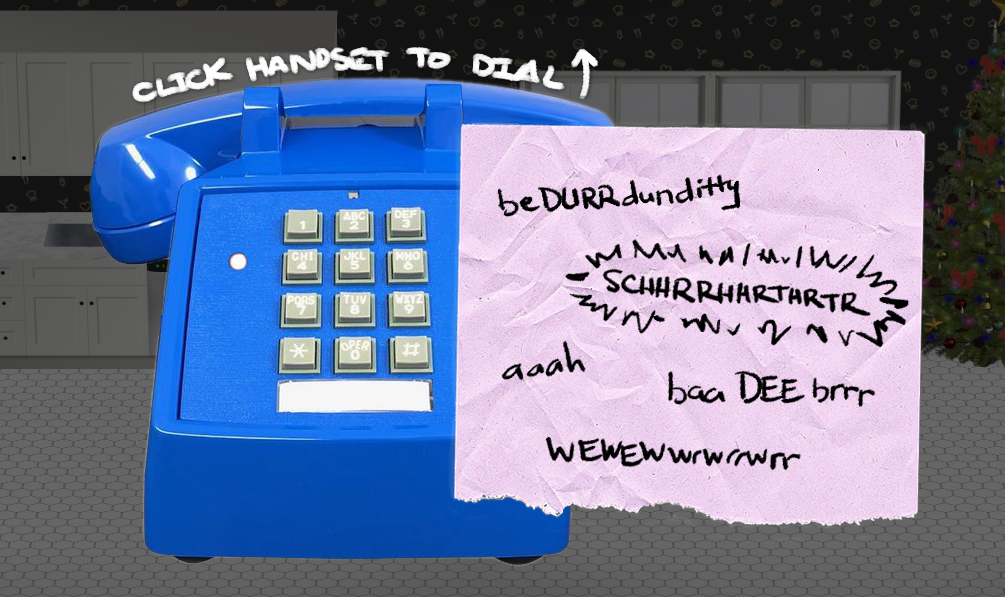 CLICK HANDSET TO DIAL ↑
1
ABC 2
DEF 3
GHI 4
JKL 5
MNO 6
PQRS 7
TUV 8
WXYZ 9
*
OPER 0
#
beDURRdunditty
SCHHRRHHRTHRTR
aaah
baa DEE brrr
WEWEWwrwrrwrr